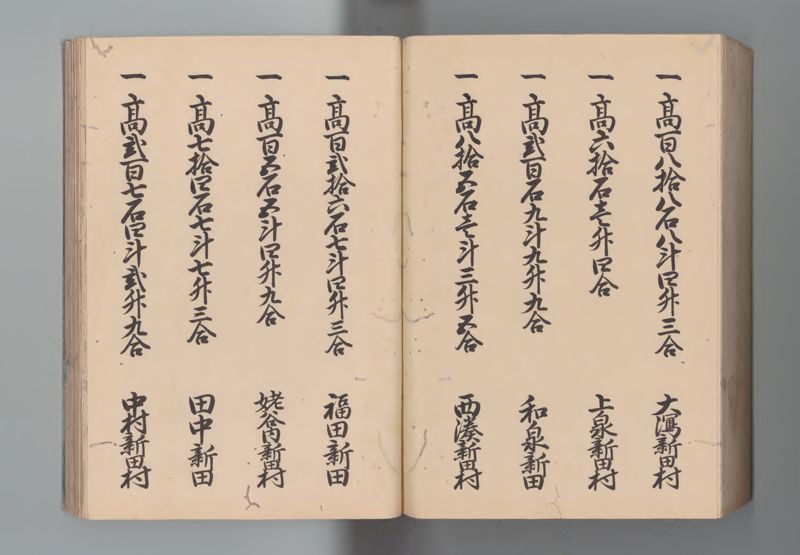 一 高百八拾八石八斗四升三合 大潟新田村
一 高六拾石壱升四合 上泉新田村
一 高弐百石九斗九升九合 和泉新田
一 高八拾五石壱斗三升五合 西湊新田村
一 高百弐拾六石七斗四升三合 福田新田
一 高百五石五斗四升九合 姥谷内新田村
一 高七拾四石七斗七升三合 田中新田
一 高弐百七石四斗弐升九合 中村新田村